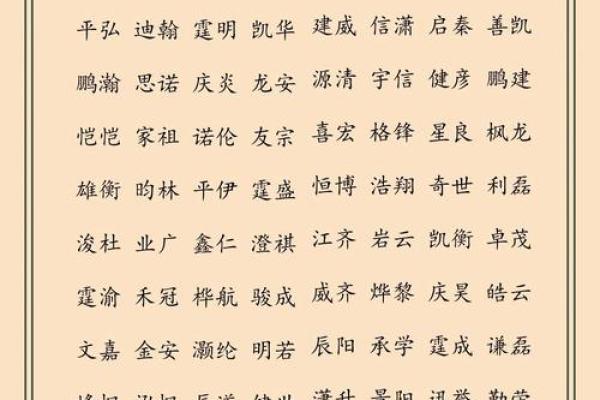 平弘 迪翰 霆明 凯华 建威 信潇 启秦 善凯
鹏瀚 思诺 庆炎 龙安 源清 宇信 健彦 鹏建
恺恺 家祖 诺伦 友宗 喜宏 格锋 星良 枫龙
雄衡 昀林 平伊 霆盛 恒博 浩翔 奇世 利磊
浚杜 业广 鑫仁 澄祺 江齐 岩云 凯衡 卓茂
霆渝 禾冠 桦航 骏成 威齐 烨黎 庆昊 皓云
文嘉 金安 灏纶 明若 辰阳 承学 霆成 谦磊